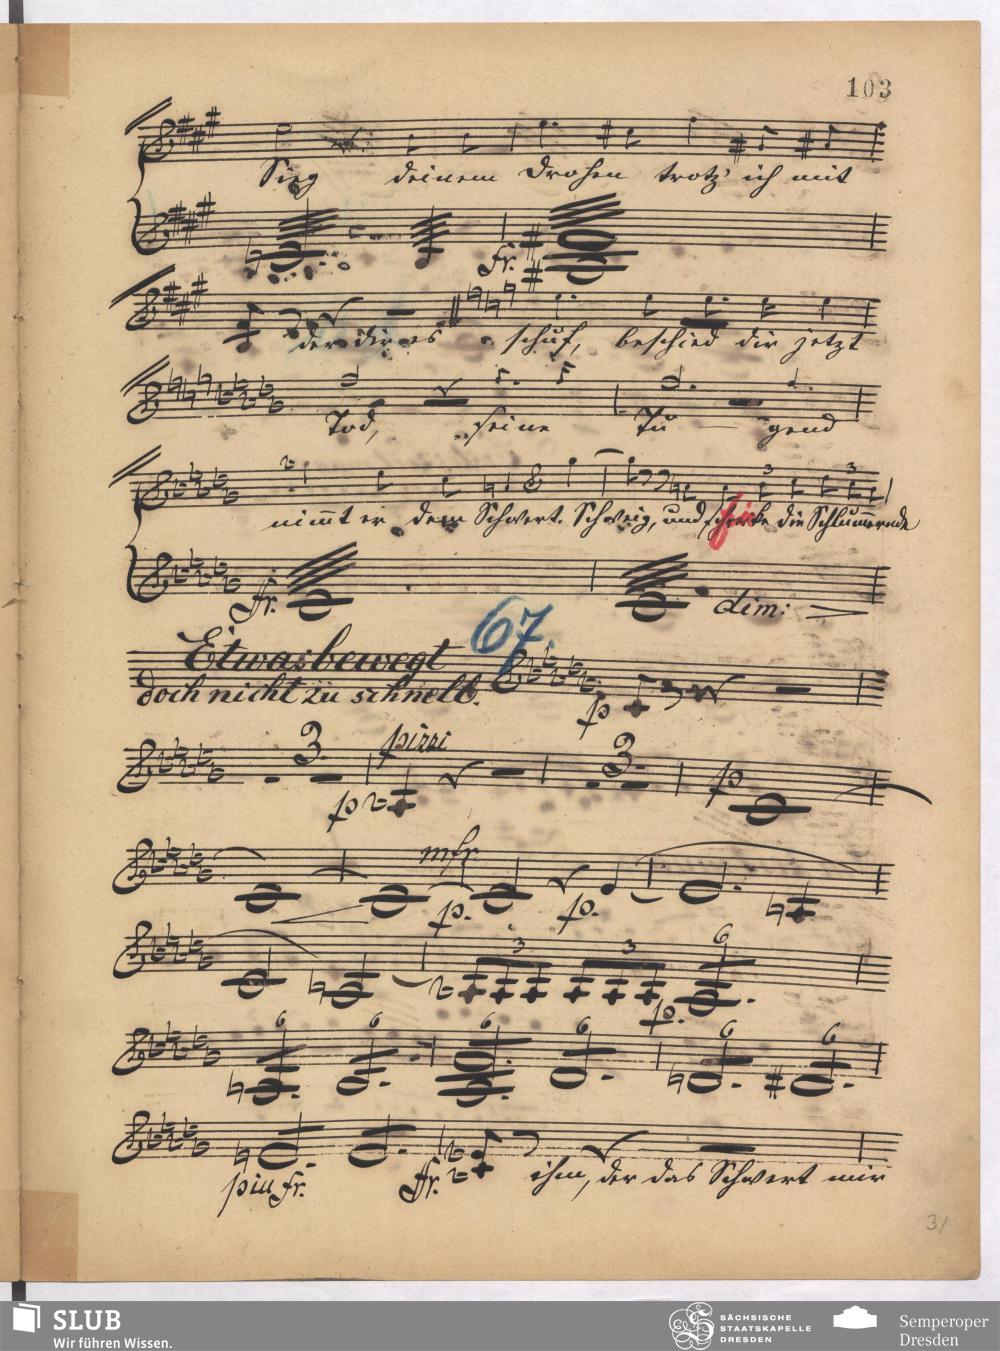 103
Sieg deinem Drohen trotz' ich mit
fr.
der dir es schuf, beschied dir jetzt
Tod, seine Tu - gend
nim̅t er dem Schwert. Schweig, und schrecke die Schlum̅ernde
fr. dim:
67.
Etwas bewegt
doch nicht zu schnell.
p
3 pizzi 3 p
p
mfr
p. p.
3 3 6
p.
6 6 6 6 6 6
piu fr. fr. ihm, der das Schwert mir
31
SLUB
Wir führen Wissen.
SÄCHSISCHE
STAATSKAPELLE
DRESDEN
Semperoper
Dresden